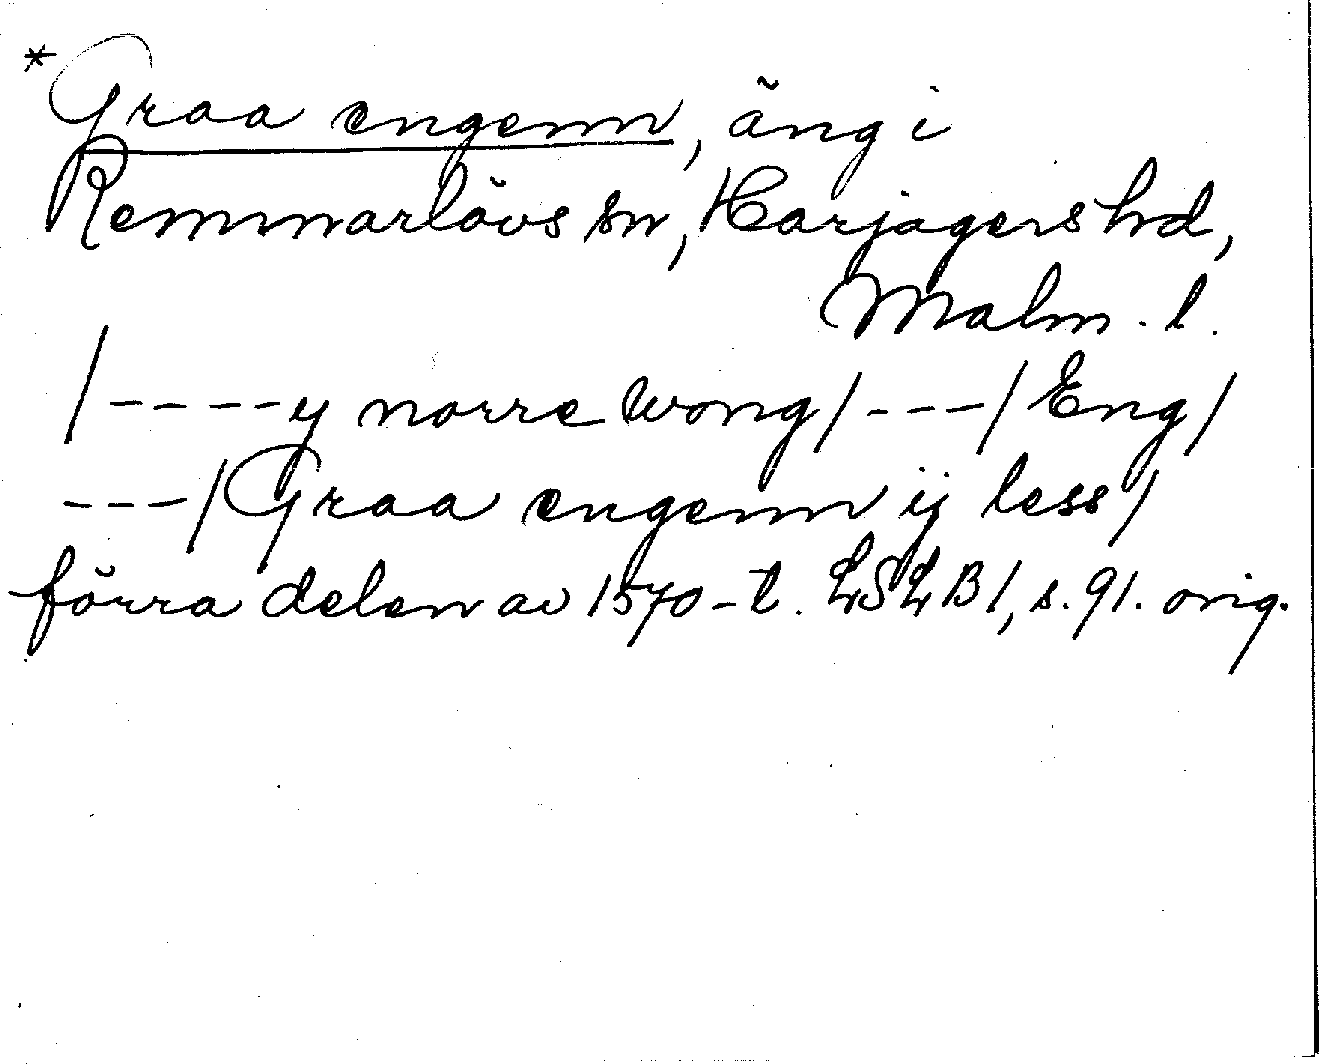 *Graa engenn, äng i
Remmarlövs sn, Harjagers hd,
Malm. l.
/----y norre wong/---/Eng/
---/Graa engenn ij less/
förra delen av 1570-t. LSLB1, s. 91. orig.